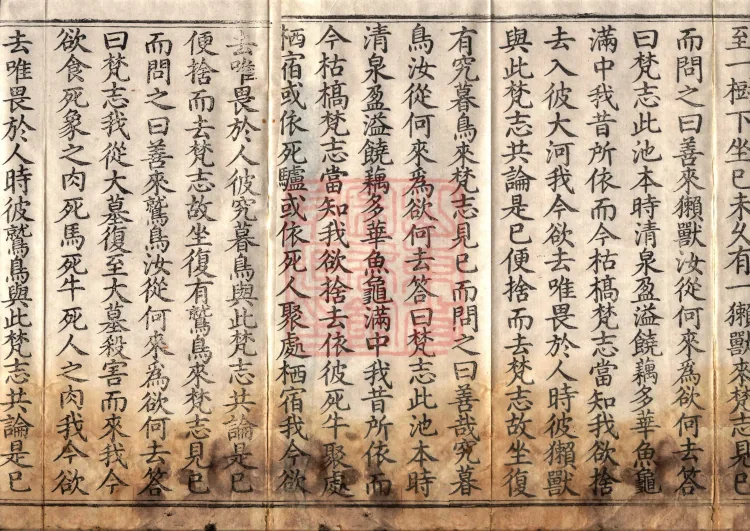 至一樹下坐已未久有一獺獸來梵志見已
而問之曰善來獺獸汝從何來為欲何去答
曰梵志此池本時清泉盈溢饒藕多華魚龜
滿中我昔所依而今枯槁梵志當知我欲捨
去入彼大河我今欲去唯畏於人時彼獺獸
與此梵志共論是已便捨而去梵志故坐復
有究暮鳥來梵志見已而問之曰善哉究暮
鳥汝從何來為欲何去答曰梵志此池本時
清泉盈溢饒藕多華魚龜滿中我昔所依而
今枯槁梵志當知我欲捨去依彼死牛聚處
栖宿或依死驢或依死人聚處栖宿我今欲
去唯畏於人彼究暮鳥與此梵志共論是已
便捨而去梵志故坐復有鷲鳥來梵志見已
而問之曰善來鷲鳥汝從何來為欲何去答
曰梵志我從大墓復至大墓殺害而來我今
欲食死象之肉死馬死牛死人之肉我今欲
去唯畏於人時彼鷲鳥與此梵志共論是已